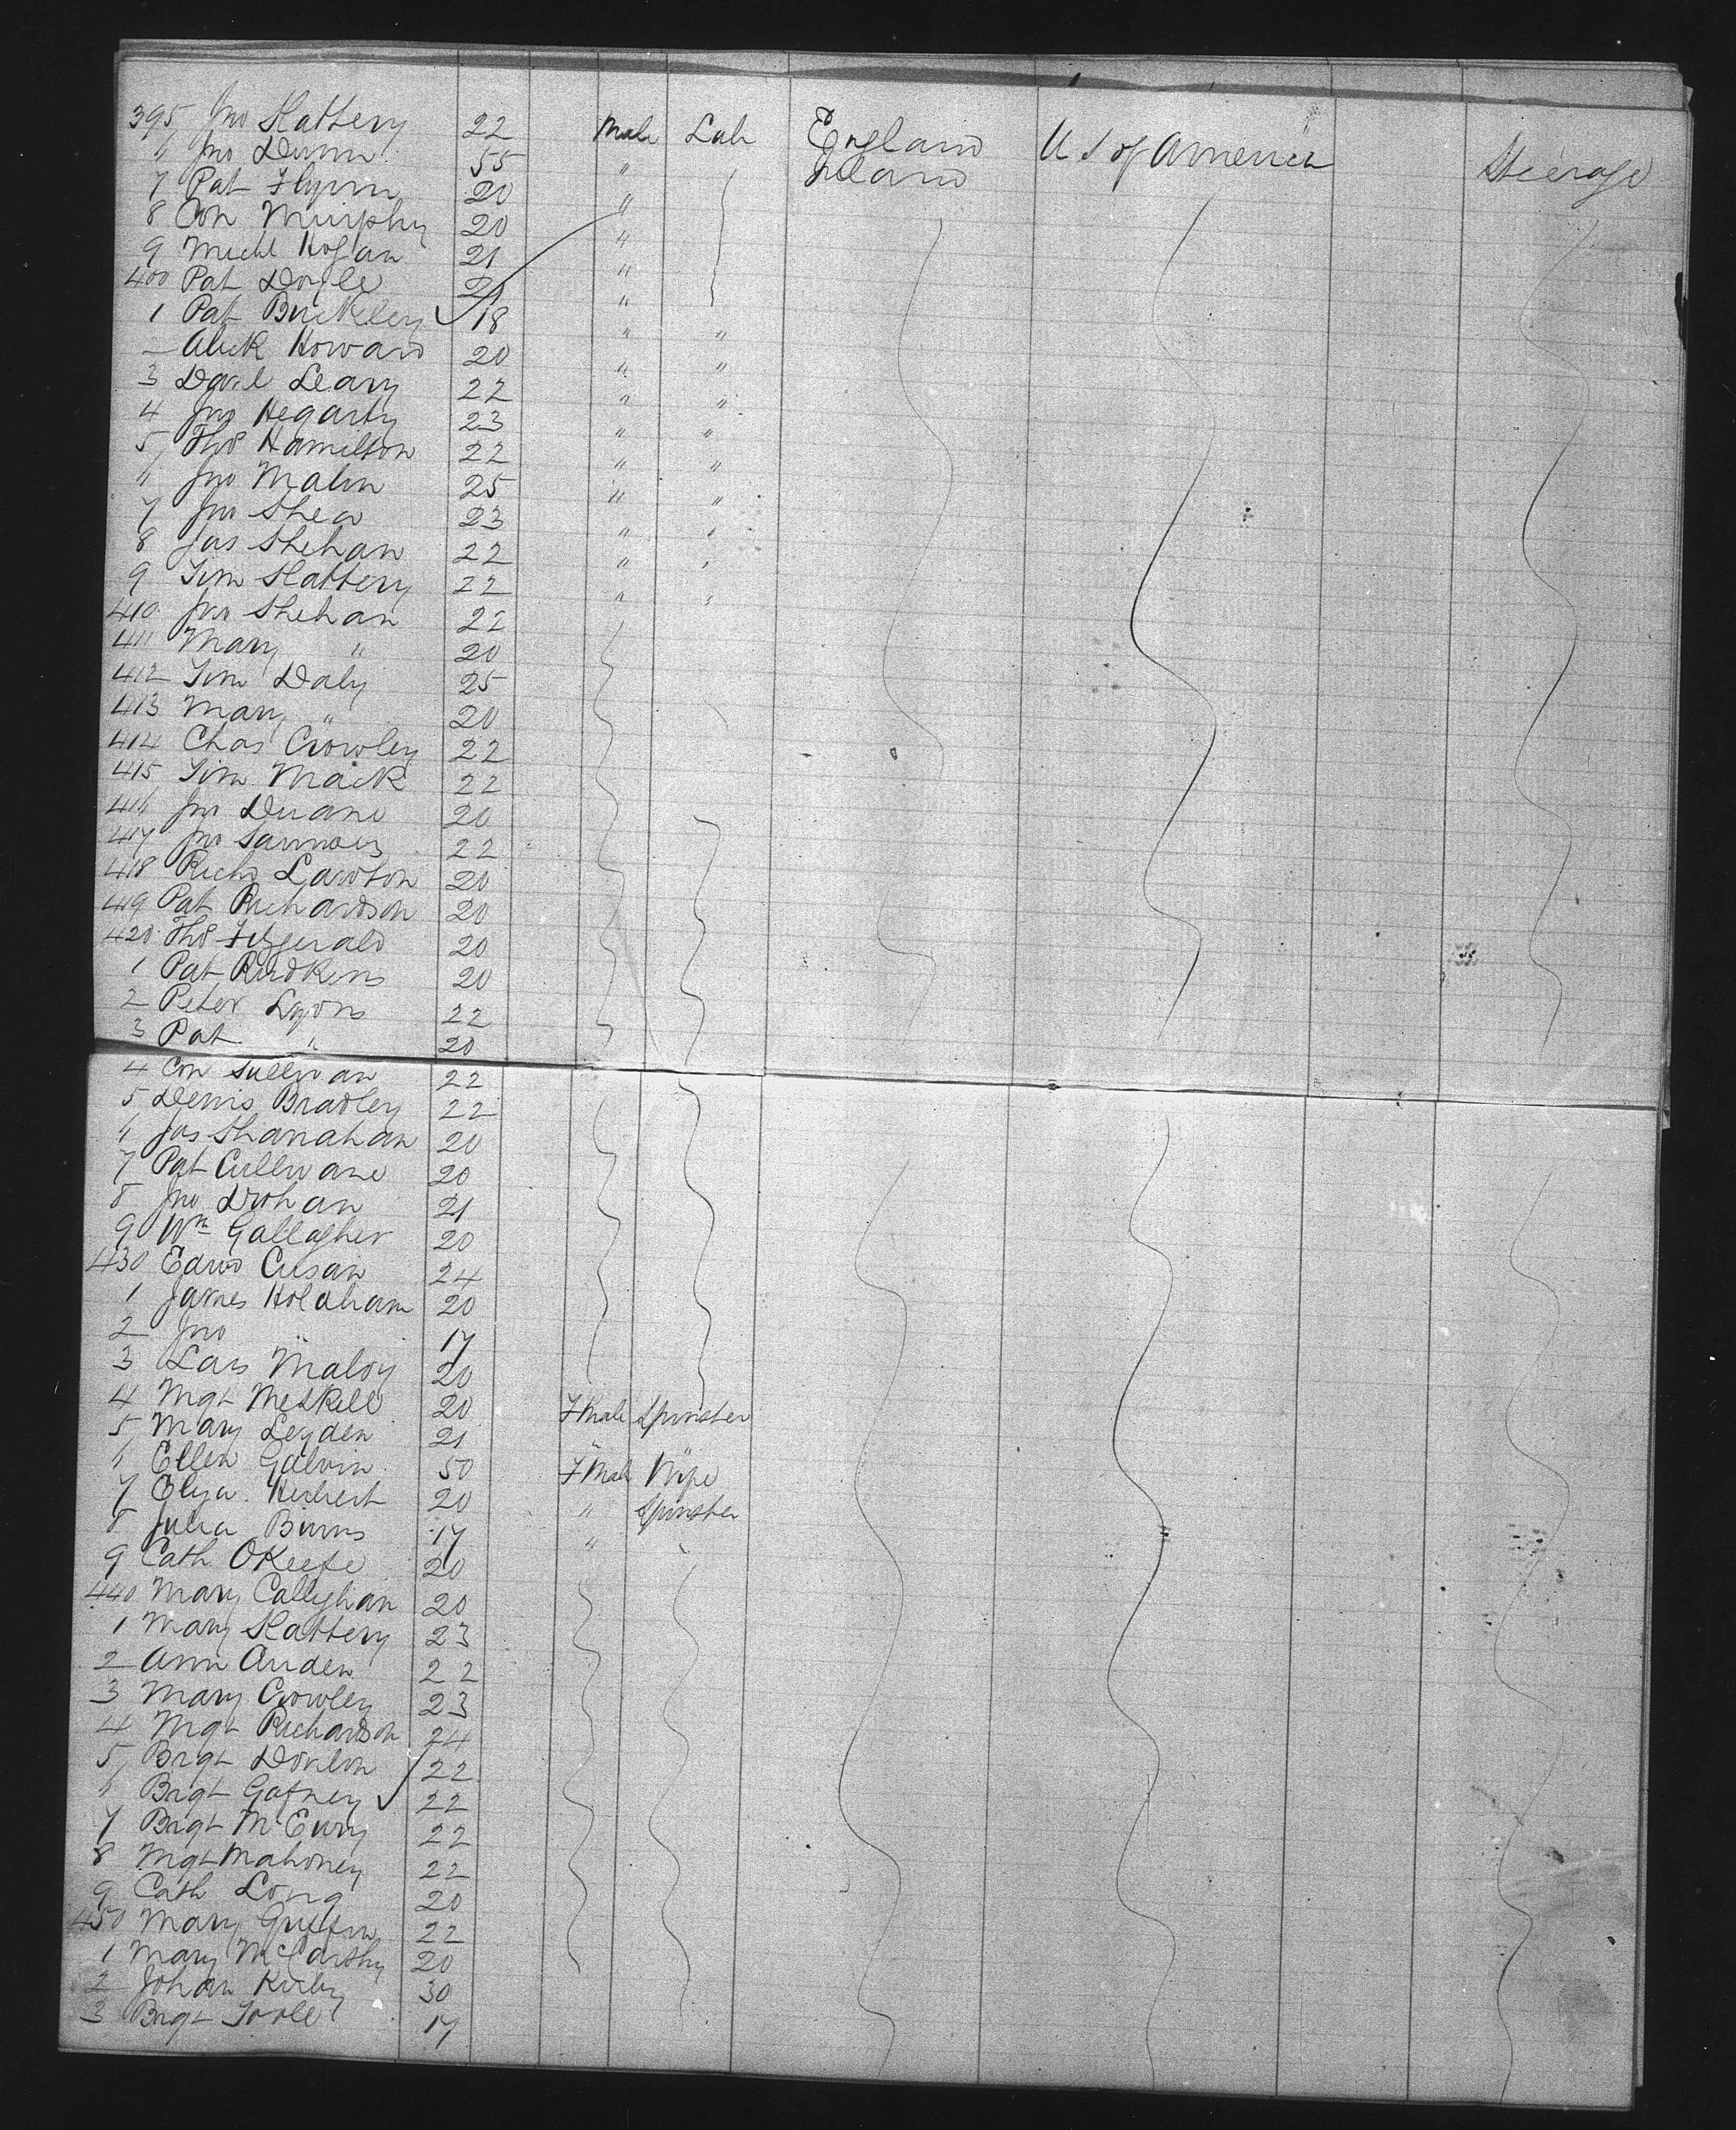 395 Jno Slattery 22 Male Lab England U S of America Steerage
6 Jno Dunn 55 " Ireland
7 Pat Flynn 20 "
8 Con Murphy 20 "
9 Michl Hogan 21 "
400 Pat Doyle 21 "
1 Pat Buckley 18 " "
2 Alick Howard 20 " "
3 Danl Leary 22 " "
4 Jno Hegarty 23 " "
5 Thos Hamilton 22 " "
6 Jno Malin 25 " "
7 Jno Shea 23 " "
8 Jas Shehan 22 " "
9 Tim Slattery 22 " "
410 Jno Shehan 22
411 Mary " 20
412 Tim Daly 25
413 Mary " 20
414 Chas Crowley 22
415 Tim Mack 22
416 Jno Duane 20
417 Jno 22
418 Richd Lawton 20
419 Pat Richardson 20
420 Thos Fitzgerald 20
1 Pat Rudkins 20
2 Peter Lyons 22
3 Pat " 20
4 Con Sullivan 22
5 Denis Bradley 22
6 Jas Shanahan 20
7 Pat Cullinane 20
8 Jno Drohan 21
9 Wm Gallagher 20
430 Edwd Cusain 24
1 James Holohan 20
2 Jno " 17
3 Lars Maloy 20
4 Mgt Meskill 20 FMale Spinster
5 Mary Leyden 21 " "
6 Ellen Galvin 50 FMale Wife
7 Eliza Herbert 20 " Spinster
8 Julia Burns 17 "
9 Cath OKeefe 20
440 Mary Callyhan 20
1 Mary Slattery 23
2 Ann Auden 22
3 Mary Crowley 23
4 Mgt Richardson 24
5 Brgt Donlon 22
6 Brgt Gafney 22
7 Brgt McEvry 22
8 Mgt Mahoney 22
9 Cath Long 20
450 Mary Griffin 22
1 Mary McCarthy 20
2 Johan Kirby 30
3 Brgt Toole 17